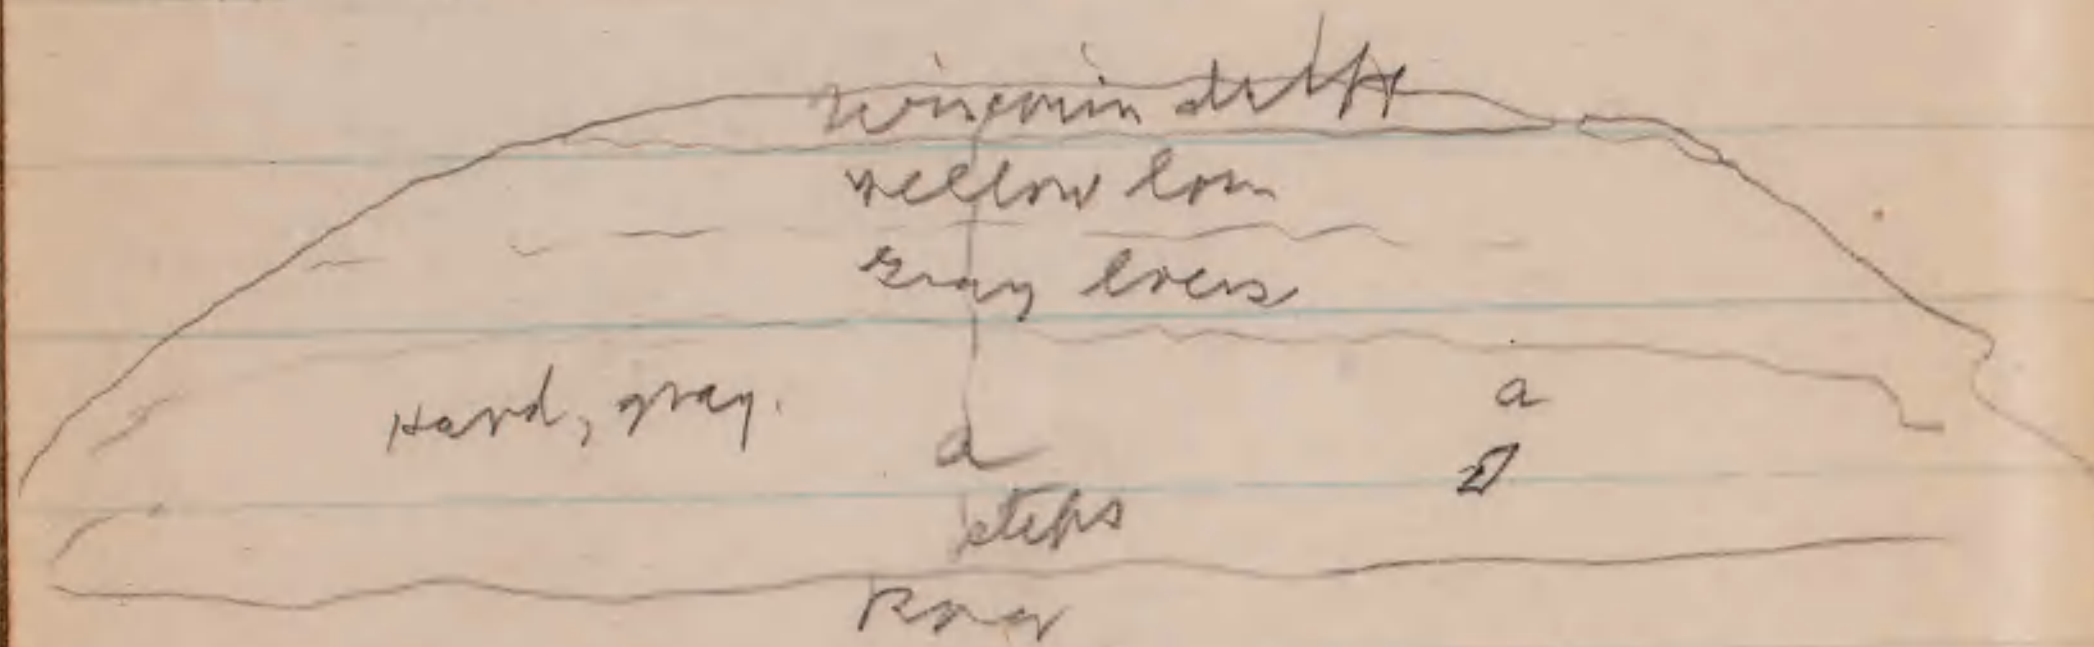 Wisconsin drift
Yellow loess
Gray loess
Hard, gray.
a
a
steps
Road